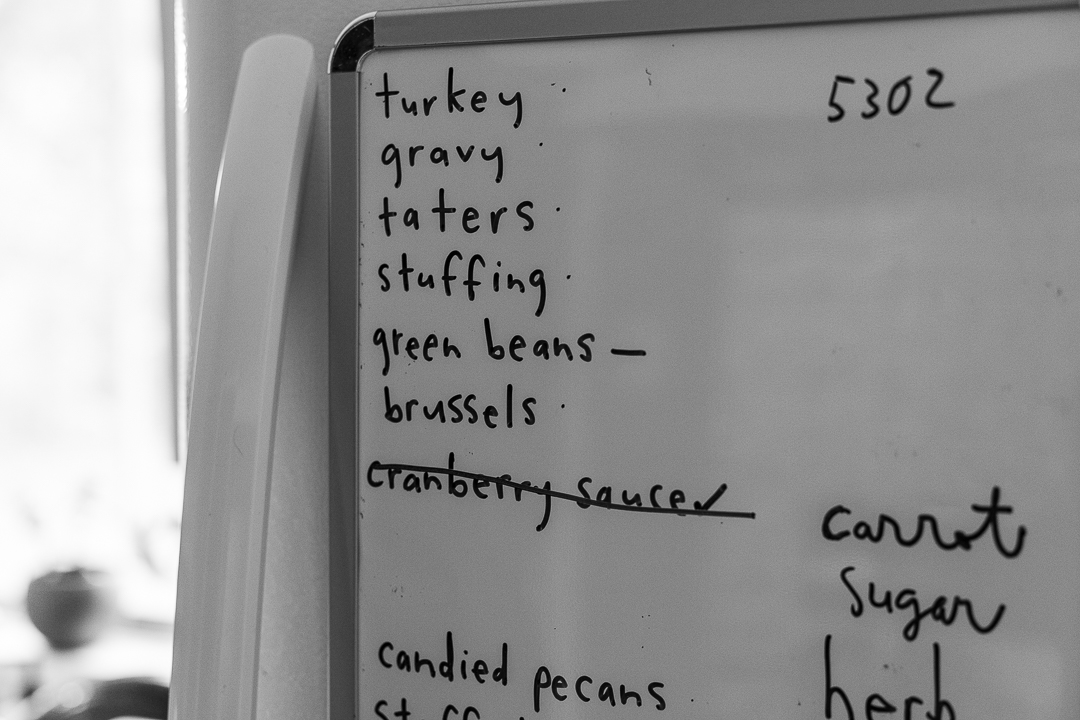 turkey
gravy
taters
stuffing
green beans —
brussels
cranberry sauce ✓
candied pecans
5302
carrot
sugar
herb